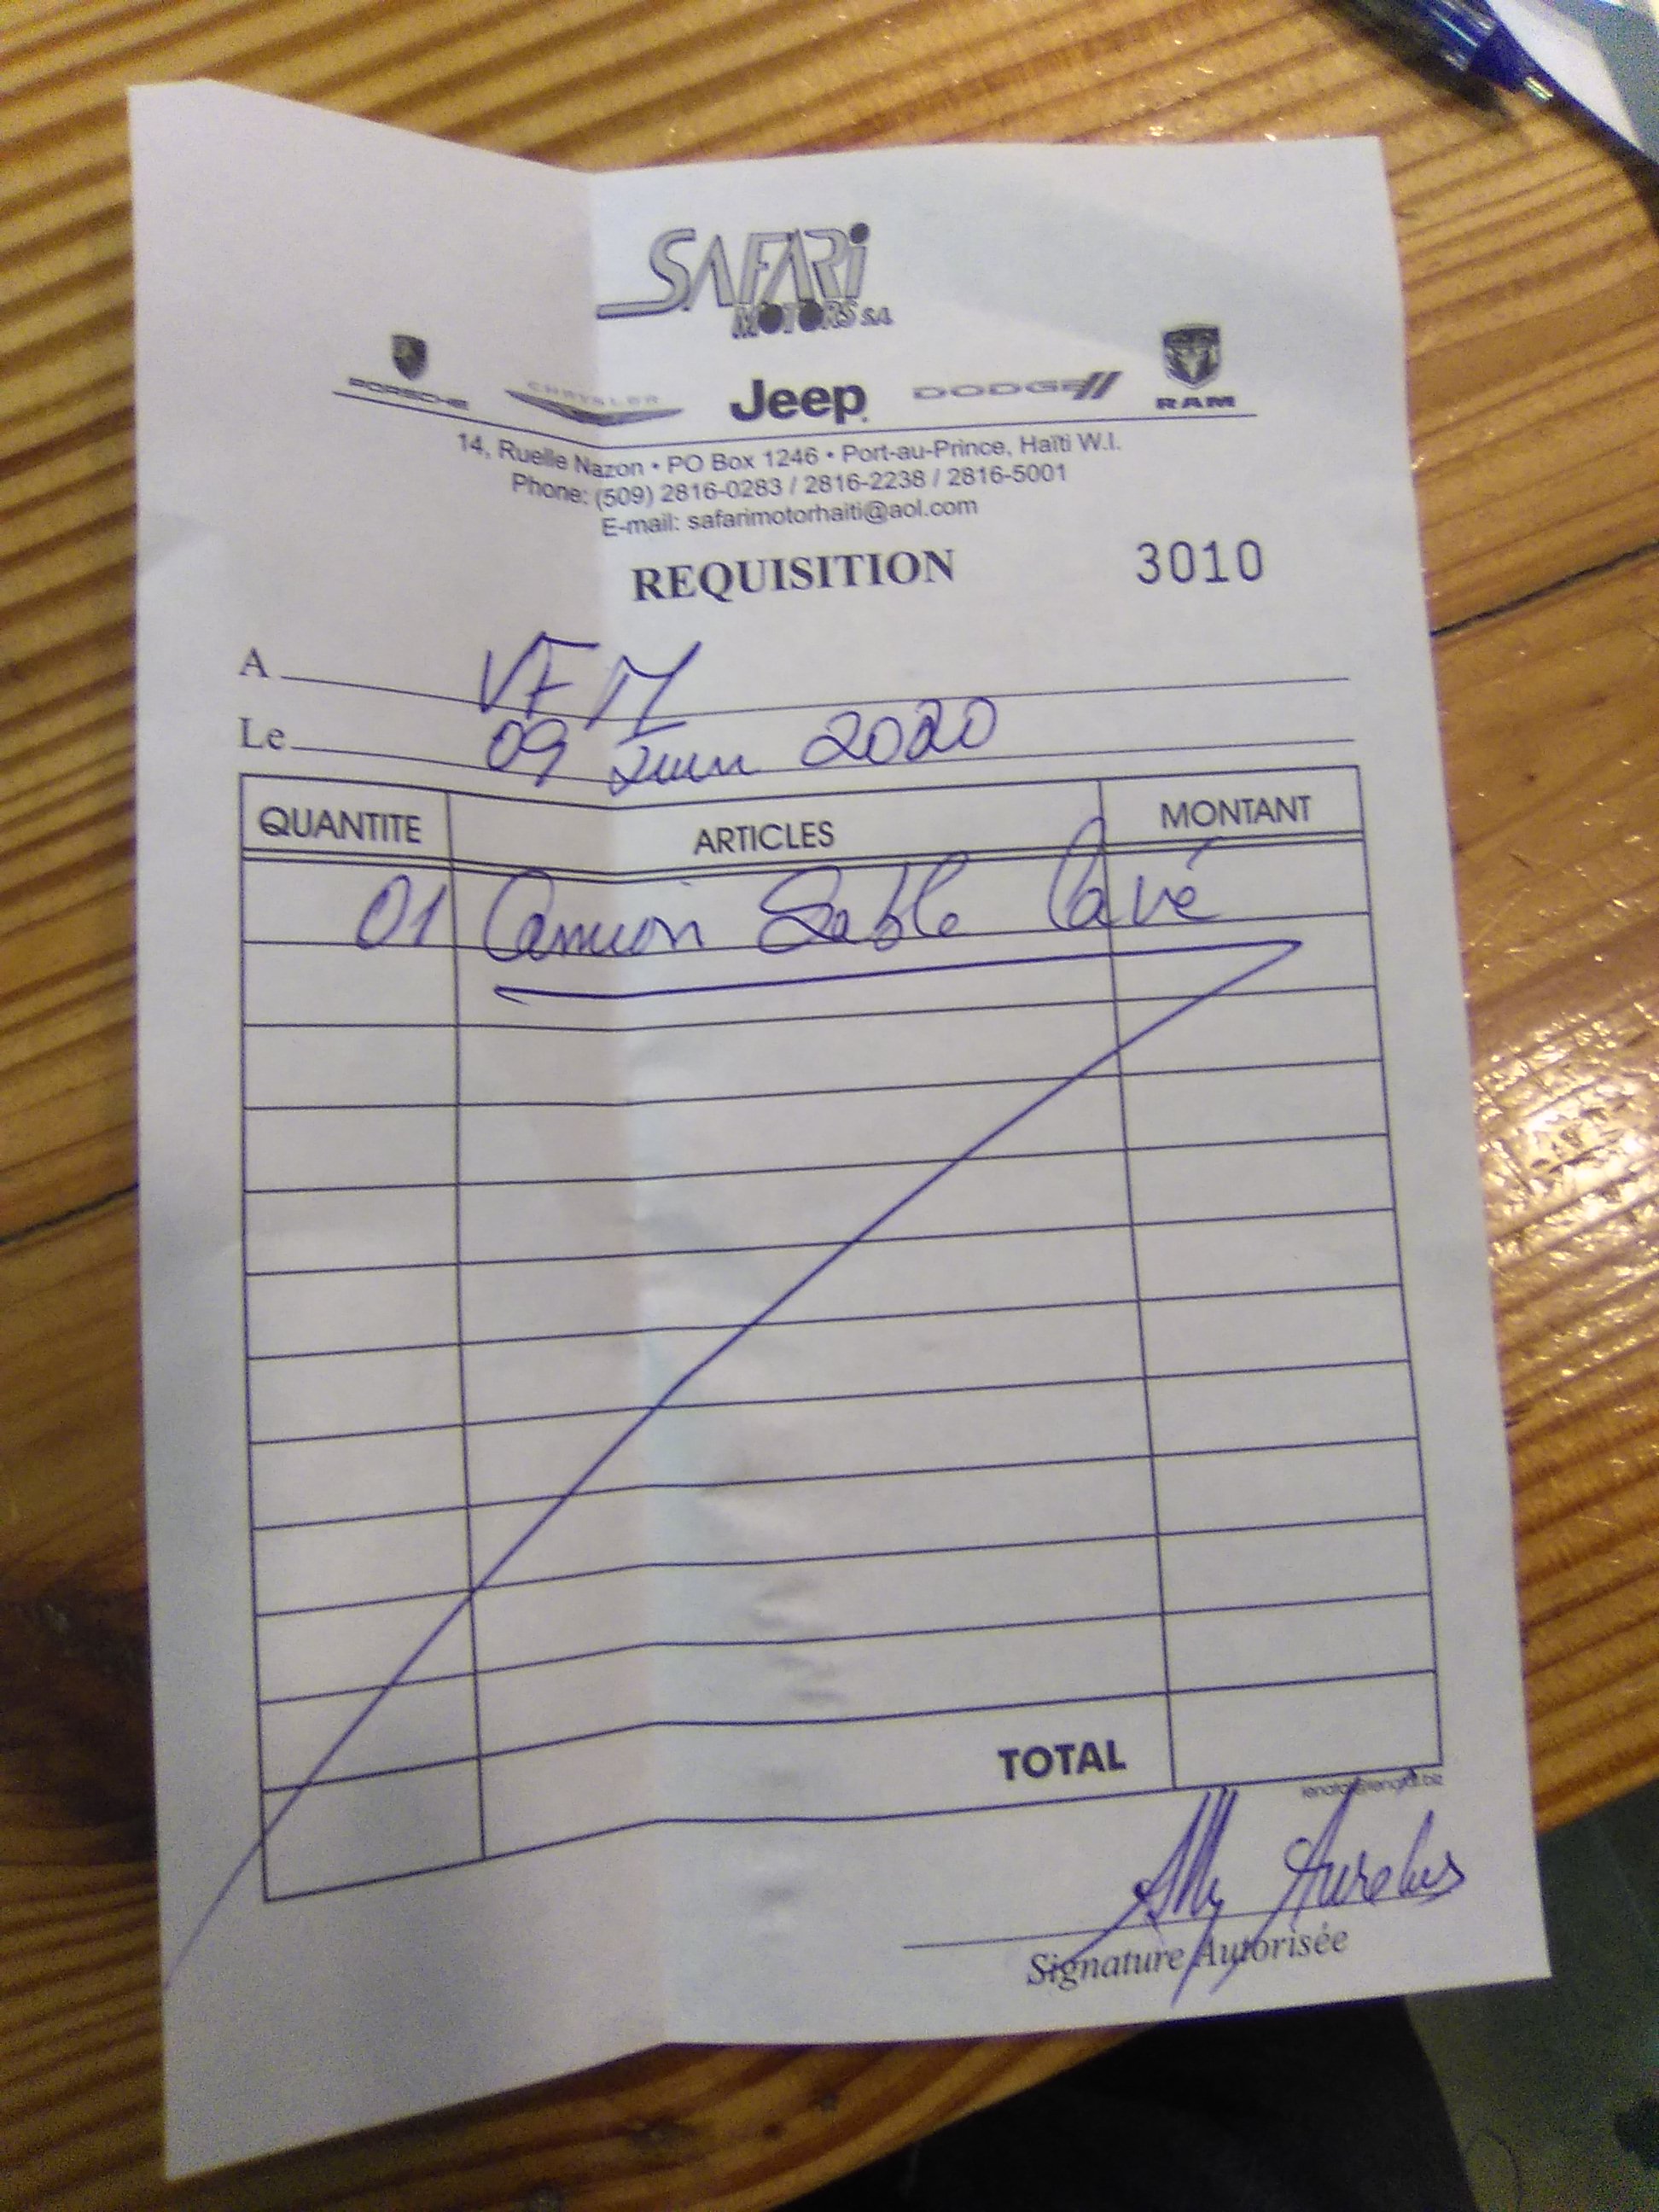 SAFARi
MOTORS S.A.
PORSCHE CHRYSLER Jeep DODGE RAM
14, Ruelle Nazon • PO Box 1246 • Port-au-Prince, Haïti W.I.
Phone: (509) 2816-0283 / 2816-2238 / 2816-5001
E-mail: safarimotorhaiti@aol.com
REQUISITION 3010
A VFM
Le 09 Juin 2020
QUANTITE ARTICLES MONTANT
01 Camion Sable lavé
TOTAL
Aurelus
Signature Autorisée